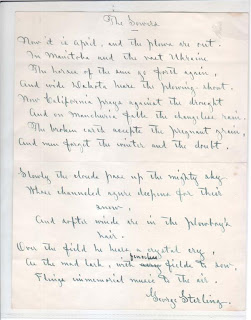 The Sowers
Now it is April, and the plows are out.
In Manitoba and the vast Ukraine
The horses of the sun go forth again,
And wide Dakota hears the plowing-shout.
Now California prays against the drought
And on Manchuria falls the changeless rain.
The broken earth accepts the pregnant grain,
And men forget the winter and the doubt.
Slowly the clouds pass up the mighty sky
Whose channeled azure deepens for their
snow,
And softer winds are in the plowboy's
hair.
Over the field he hears a crystal cry,
As the mad lark, with fields to sow,
Flings immemorial music to the air.
George Sterling.